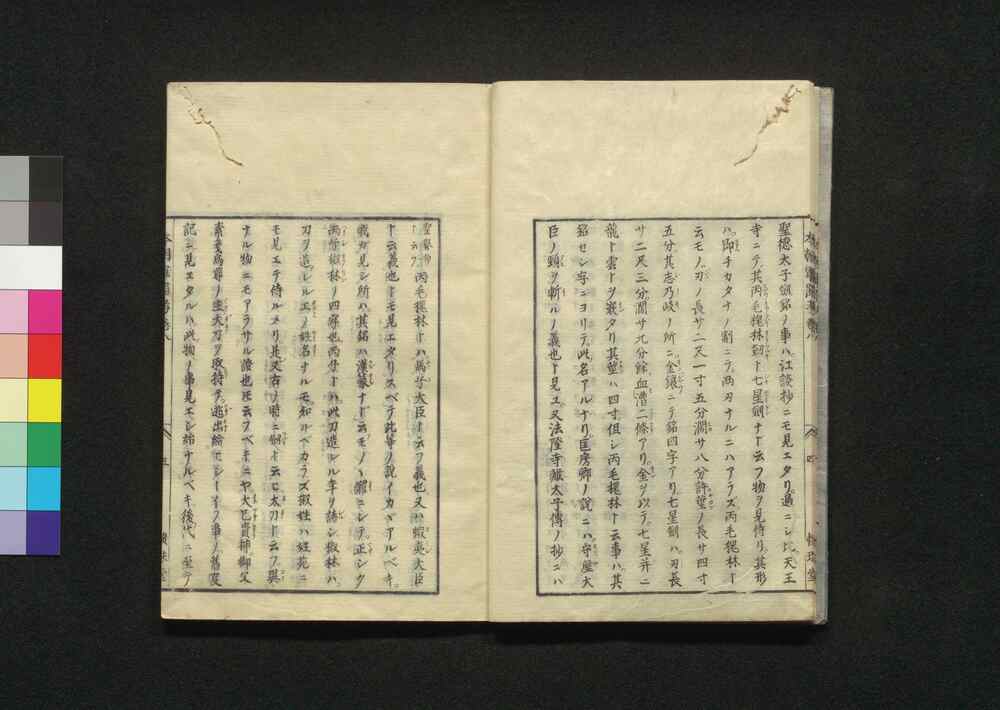 聖徳太子頌銘ノ事ハ江談抄ニモ見エタリ過ニシ比天王
寺ニテ其丙毛槐林劔ト七星劔ナト云フ物ヲ見侍リ其形
ハ即チカタナノ制ニテ両刃ナルニハアラス丙毛槐林ト
云モノハ刃ノ長サ二尺一寸五分濶サ八分許莖ノ長サ四寸
五分其志乃岐ノ所ニ金鑲ニテ銘四字アリ七星劔ハ刃長
サ二尺三分濶サ九分餘血漕二條アリ金ヲ以テ七星并ニ
龍ト雲トヲ嵌タリ其莖ハ四寸但シ丙毛槐林ト云事ハ其
銘セシ字ニヨリテ此名アルナリ匡房卿ノ説ニハ守屋大
臣ノ頸ヲ斬ルノ義也ト見ユ又法隆寺蔵太子傳ノ抄ニハ
丙毛槐林トハ馬子大臣ト云フ義也又ハ蝦夷大臣
ト云義也トモ見エタリスベテ此等ノ説イカヾアルベキ
我カ見シ所ハ其銘ハ漢篆ナド云モノヽ體ニシテ正シク
丙子椒林ノ四字也丙子トハ此刀造レル年ヲ誌シ椒林ハ
刀ヲ造レル工ノ姓名ナルモ知ルベカラズ椒姓ハ姓苑ニ
モ見エテ侍ルメリ是又古ノ時ニ劔ト云ヒ太刀ト云フ異
ナル物ニモアラサル證也ト云フベキニヤ大己貴神御父
素戔烏尊ノ生大刀ヲ取持テ逃出給ヒシトイフ事ノ舊史
記ニ見エタルハ此物ノ事見エシ始ナルベキ後代ニ至テ